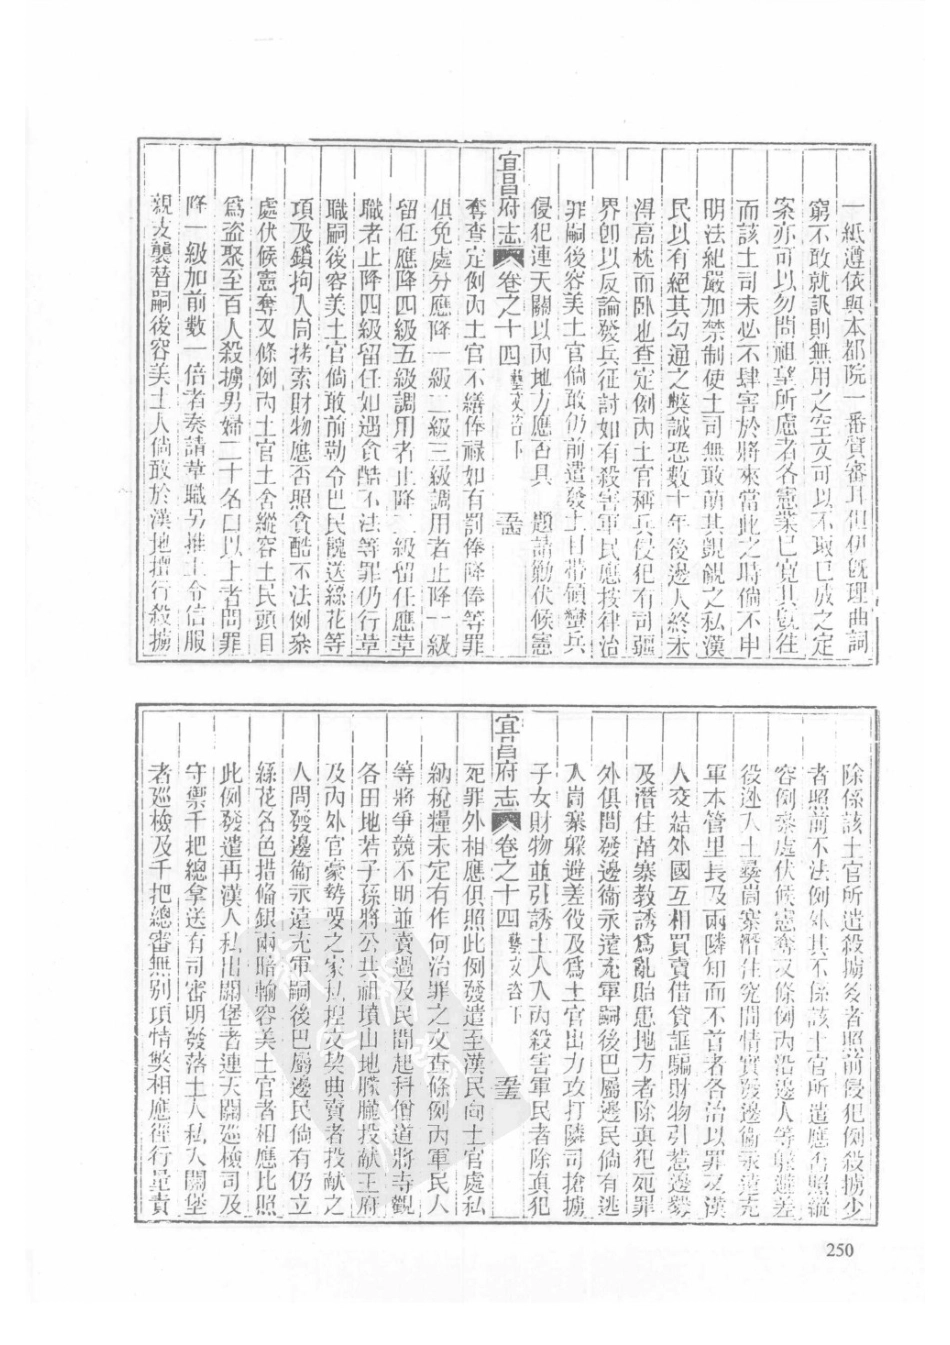 一紙遵依與本都院一番質審耳但伊旣理曲詞
窮不敢就訊則無用之空文可以不取已成之定
案亦可以勿問祖望所慮者各憲業已寬其旣往
而該土司未必不肆害於將來當此之時倘不申
明法紀嚴加禁制使土司無敢萌其覬覦之私漢
民以有絕其勾通之獘誠恐數十年後邊人終未
得高枕而卧也查定例內土官稱兵侵犯有司疆
界卽以反論發兵征討如有殺害軍民應按律治
罪嗣後容美土官倘敢仍前遣發土目帶領蠻兵
侵犯連天關以內地方應否具 題請勦伏候憲
宜昌府志 卷之十四 藝文咨下 五四
奪查定例內土官不繕俸祿如有罰俸降俸等罪
俱免處分應降一級二級三級調用者止降一級
留任應降四級五級調用者止降二級留任應革
職者止降四級留任如遇貪酷不法等罪仍行革
職嗣後容美土官倘敢前勒令巴民餽送絲花等
項及鎖拘入峝拷索財物應否照貪酷不法例叅
處伏候憲奪又條例內土官土舍縱容土民頭目
爲盜聚至百人殺擄男婦二十名口以上者問罪
降一級加前數一倍者奏請革職另推土令信服
親支襲替嗣後容美土人倘敢於漢地擅行殺擄
除係該土官所遣殺擄多者照前侵犯例殺擄少
者照前不法例外其不係該土官所遣應否照縱
容例叅處伏候憲奪又條例內沿邊人等躱避差
役逃入土彞峝寨潛住究問情實發邊衞永遠充
軍本管里長及兩隣知而不首者各治以罪又漢
人交結外國互相買賣借貸誆騙財物引惹邊釁
及潛住苗寨教誘爲亂貽患地方者除眞犯死罪
外俱問發邊衞永遠充軍嗣後巴屬邊民倘有逃
入峝寨躱避差役及爲土官出力攻打隣司搶擄
子女財物並引誘土人入內殺害軍民者除眞犯
宜昌府志 卷之十四 藝文咨下 五五
死罪外相應俱照此例發遣至漢民向土官處私
納稅糧未定有作何治罪之文查條例內軍民人
等將爭競不明並賣過及民間起科僧道將寺觀
各田地若子孫將公共祖墳山地朦朧投獻王府
及內外官豪勢要之家私揑文契典賣者投獻之
人問發邊衞永遠充軍嗣後巴屬邊民倘有仍立
絲花名色措備銀兩暗輸容美土官者相應比照
此例發遣再漢人私出關堡者連天關巡檢司及
守禦千把總拿送有司審明發落土人私入關堡
者巡檢及千把總審無別項情獘相應徑行量責
250